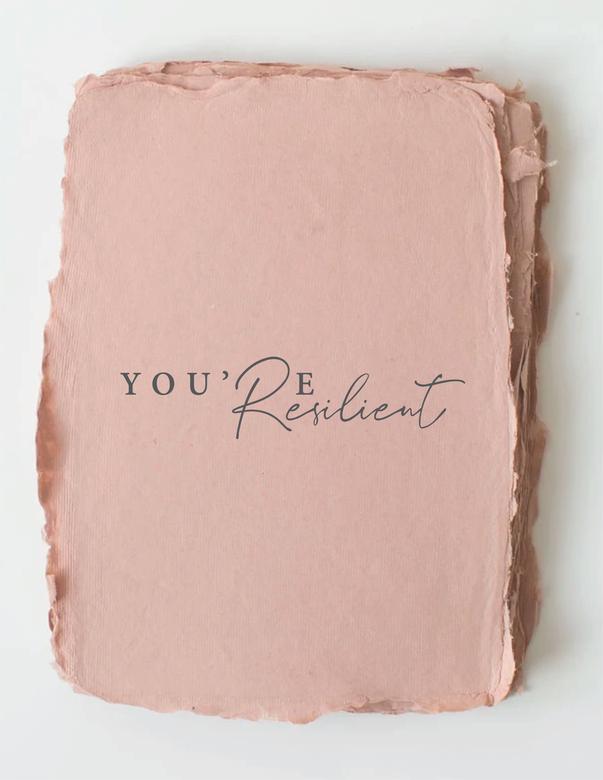 YOU'RE
Resilient